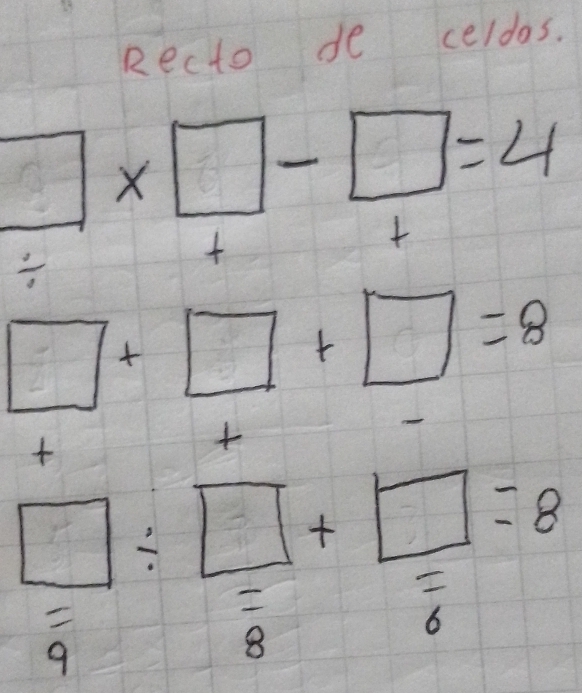 Recto de celdas.
× - = 4
÷ + +
+ + = 8
+ + -
÷ + = 8
= = =
9 8 6